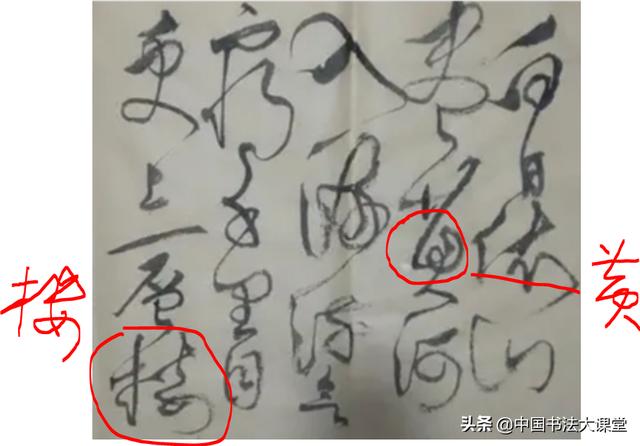 白日依山
尽黄河
入海流欲
穷千里目
更上一层楼
楼
黄
头条 @中国书法大课堂